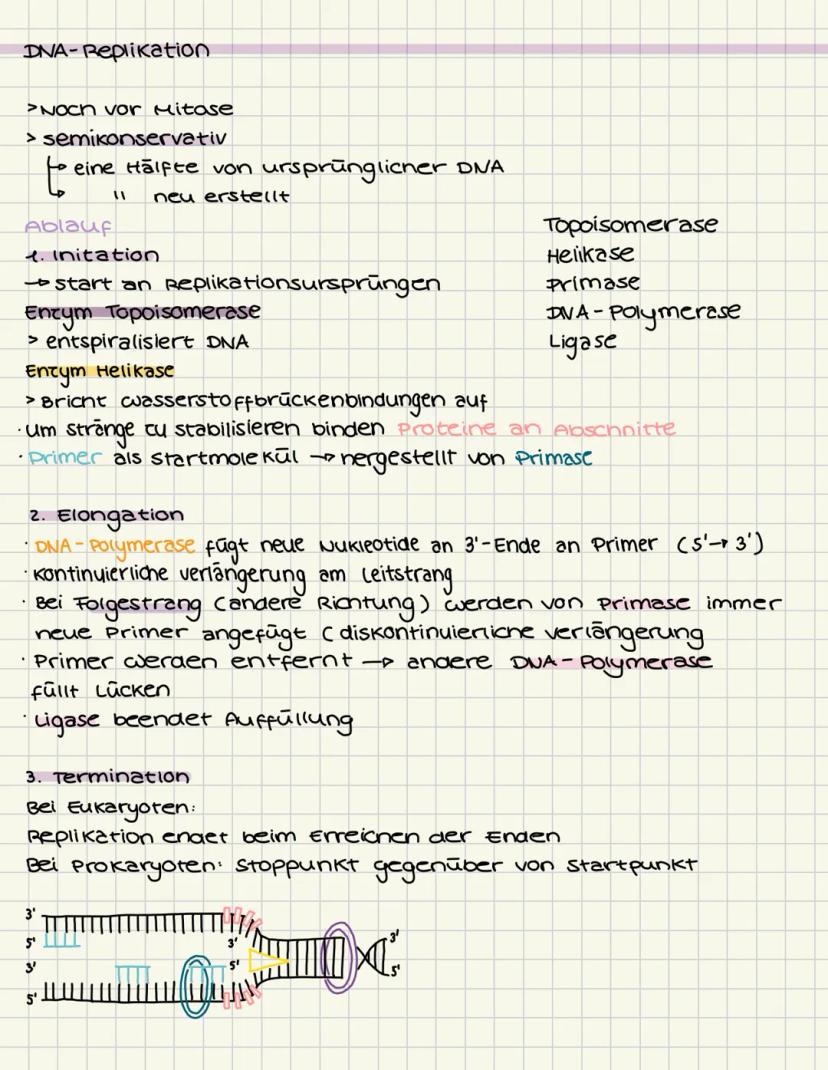 DNA-Replikation
> Noch vor Mitose
> semikonservativ
↳ eine Hälfte von ursprünglicher DNA
↳ " neu erstellt
Ablauf
1. Initation
→ start an Replikationsursprüngen
Enzym Topoisomerase
> entspiralisiert DNA
Enzym Helikase
> Bricht Wasserstoffbrückenbindungen auf
· um stränge zu stabilisieren binden Proteine an Abschnitte
· Primer als startmolekül → hergestellt von Primase
Topoisomerase
Helikase
Primase
DNA-Polymerase
Ligase
2. Elongation
· DNA-Polymerase fügt neue Nukleotide an 3'-Ende an Primer (5'→3')
· kontinuierliche verlängerung am Leitstrang
· Bei Folgestrang (andere Richtung) werden von Primase immer
neue Primer angefügt (diskontinuierliche verlängerung
· Primer werden entfernt → andere DNA-Polymerase
füllt Lücken
· Ligase beendet Auffüllung
3. Termination
Bei Eukaryoten:
Replikation endet beim Erreichen der Enden
Bei Prokaryoten: Stoppunkt gegenüber von Startpunkt
3'
5'
3'
3'
3'
5'
5'
5'